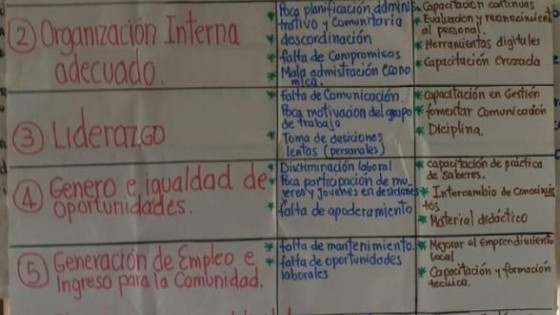 ② Organización Interna
adecuado.
Poca planificación adminis
trativo y Comunitaria
descordinación
falta de Compromisos
Mala admistración Econo
mica.
Capacitación continuas
Evaluacion y reconocimient
al personal.
Herramientas digitales
Capacitación Cruzada
③ Liderazgo
falta de Comunicación.
Poca motivación del grupo
de trabajo
Toma de desiciones
lentas (personales)
Capacitación en Gestión
fomentar Comunicación
Diciplina.
④ Genero e igualdad de
oportunidades.
Discriminación laboral
Poca participación de mu-
jeres y Jovenes en desiciones
falta de apoderamiento
capacitación de práctica
de saberes.
Intercambio de Conocimien
tos
Material didáctico
⑤ Generación de Empleo e
Ingreso para la Comunidad.
falta de mantenimiento.
falta de oportunidades
laborales
Mejorar el Emprendimiento
local
Capacitación y formación
tecnica.